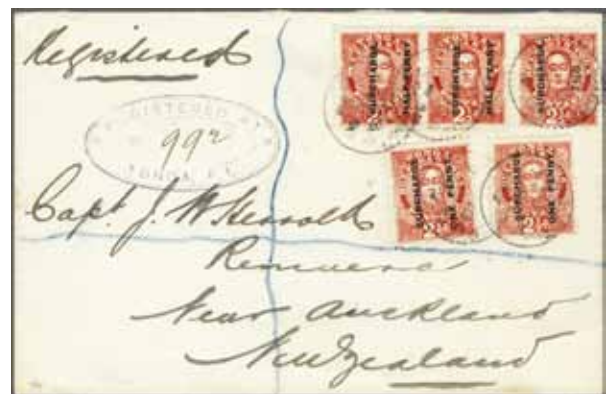 Registered
REGISTERED AT
992
TONGA
SURCHARGE HALF-PENNY
SURCHARGE HALF-PENNY
SURCHARGE
SURCHARGE ONE PENNY
SURCHARGE ONE PENNY
Capt J. W
Remuera
Near Auckland
New Zealand